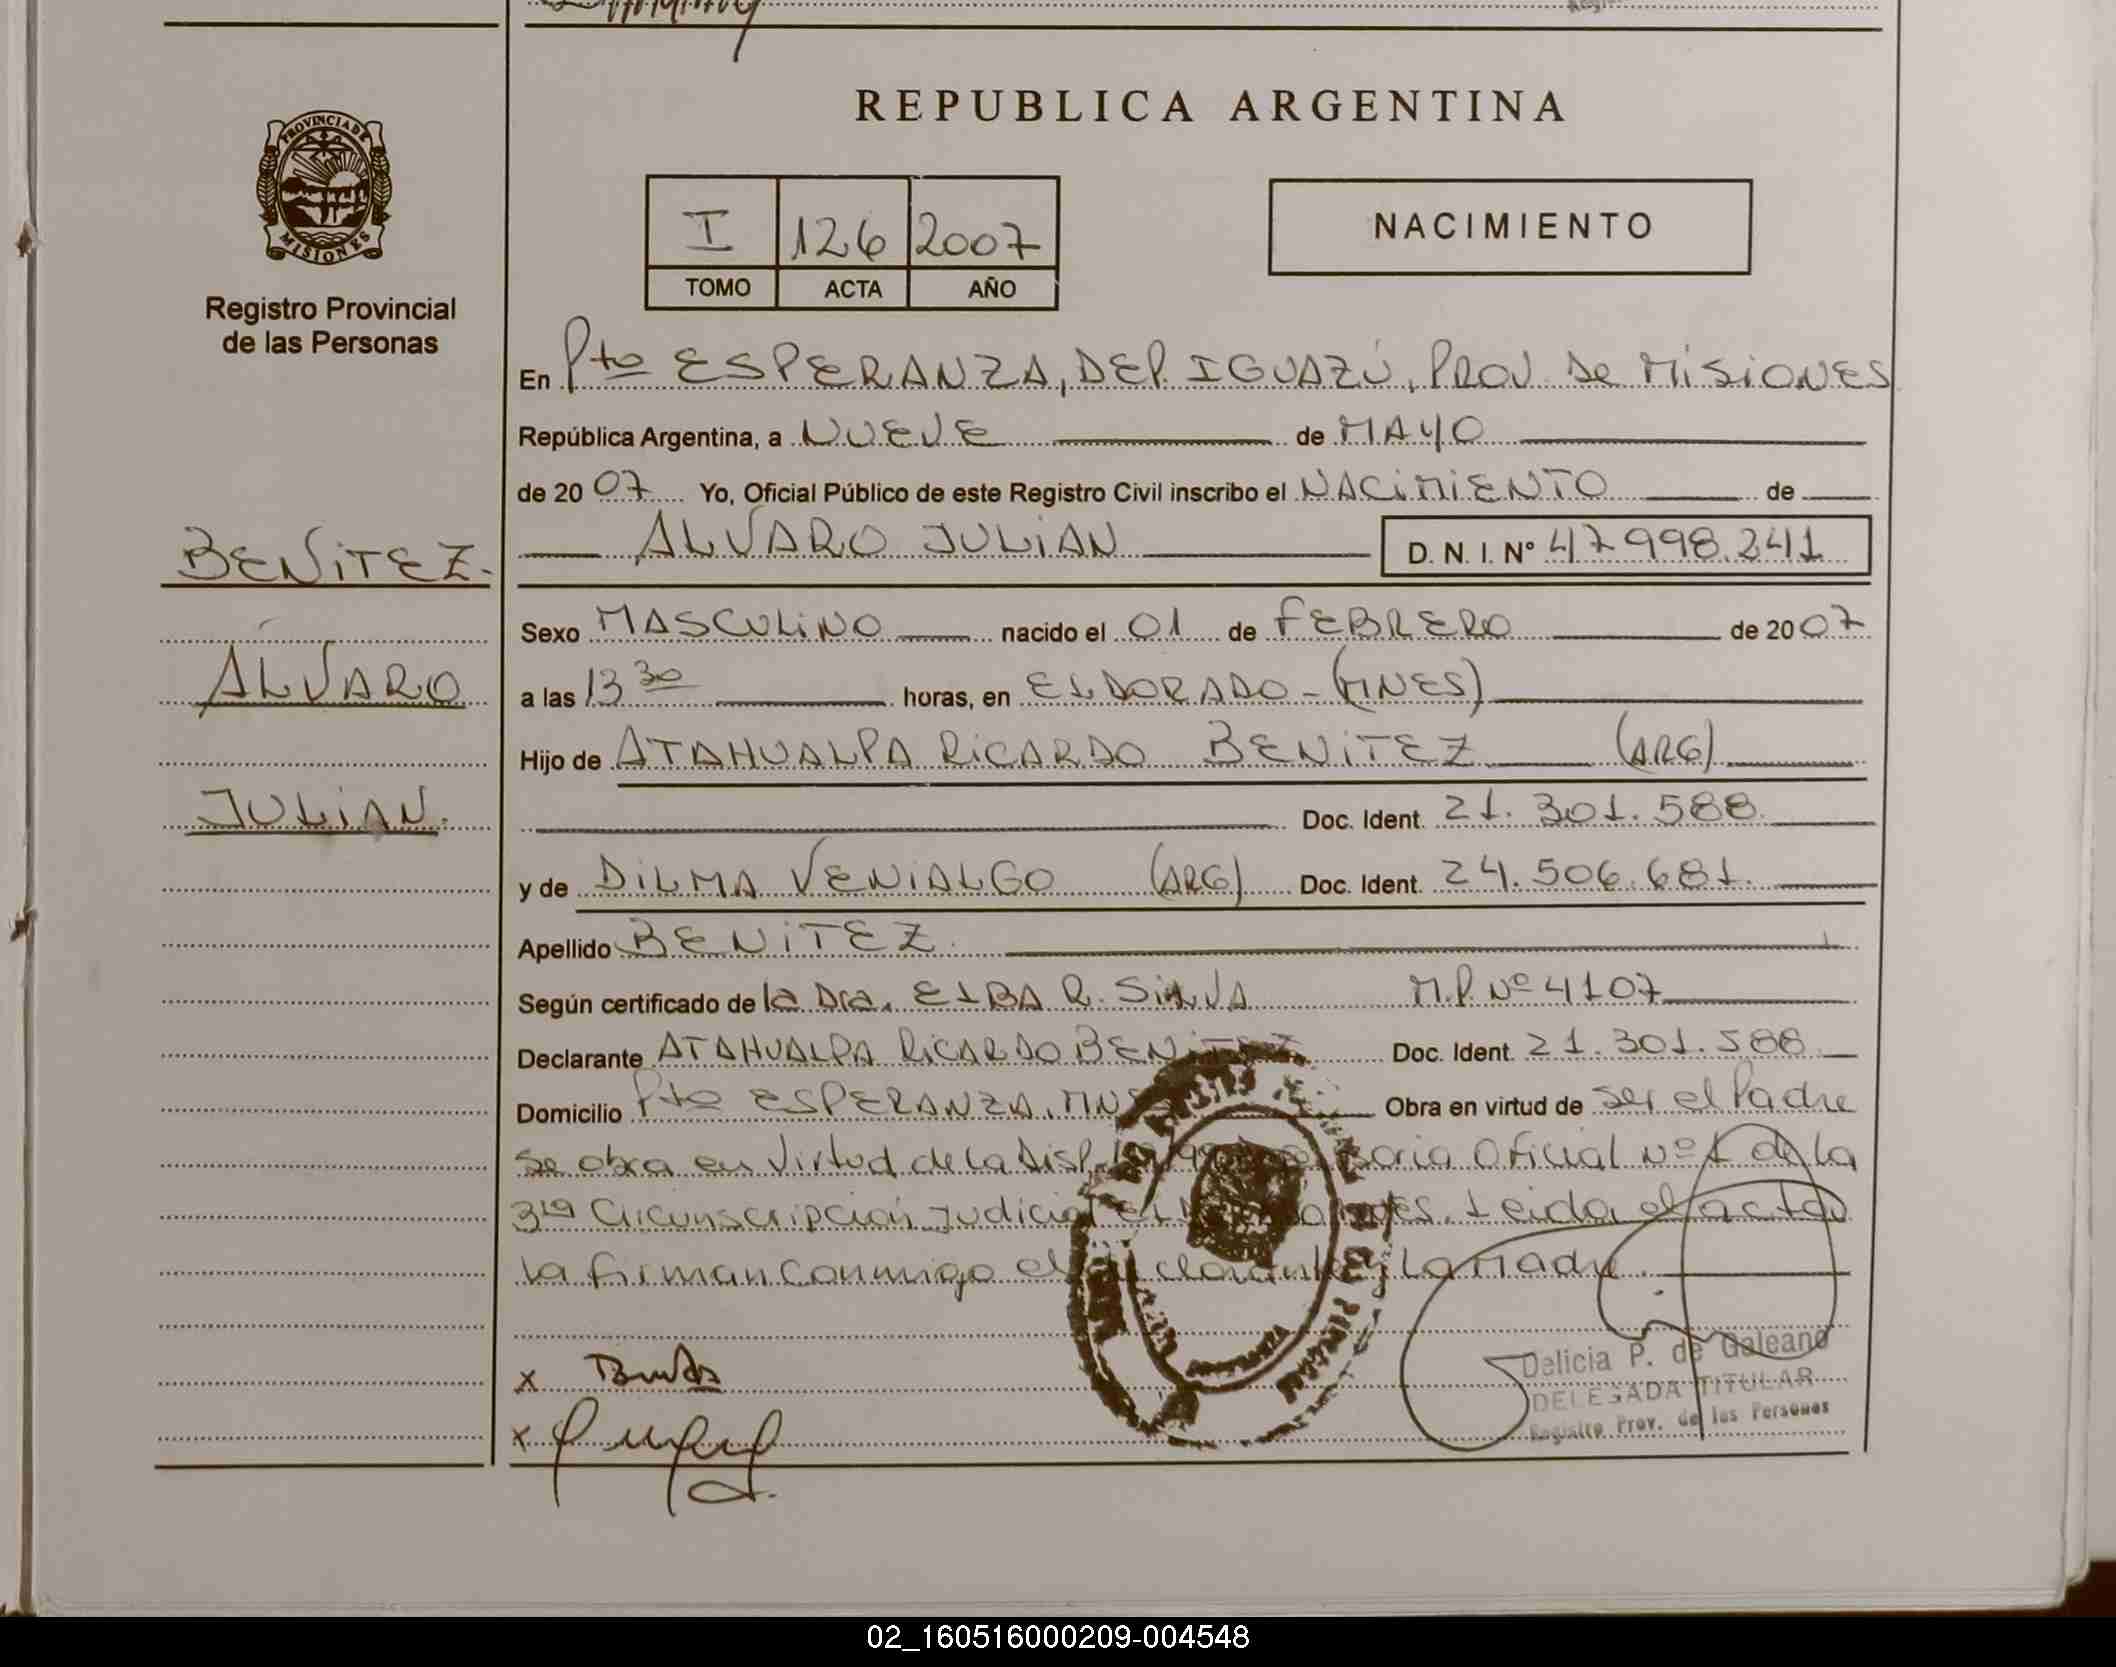 REPUBLICA ARGENTINA
PROVINCIA DE
MISIONES
Registro Provincial
de las Personas
I 126 2007
TOMO ACTA AÑO
NACIMIENTO
En Pto ESPERANZA, DEP. IGUAZÚ, PROV. De MISIONES
República Argentina, a NUEVE de MAYO
de 2007 Yo, Oficial Público de este Registro Civil inscribo el NACIMIENTO de
ALVARO JULIAN D. N. I. Nº 47998.241
BENITEZ.
ALVARO
JULIAN.
Sexo MASCULINO nacido el 01 de FEBRERO de 2007
a las 13 30 horas, en ELDORADO - (MNES)
Hijo de ATAHUALPA RICARDO BENITEZ (ARG)
Doc. Ident. 21.301.588
y de DILMA VENIALGO (ARG) Doc. Ident. 24.506.681.
Apellido BENITEZ
Según certificado de la Dra. ELBA R. SILVA M.P. Nº 4107
Declarante ATAHUALPA RICARDO BENITEZ Doc. Ident. 21.301.588
Domicilio Pto ESPERANZA, MNES Obra en virtud de ser el Padre
Se obra en Virtud de la Disp. Oficial Nº 1 de la
3ra Circunscripción Judicial Leida el acta
la firman conmigo el declarante y La Madre.
x
x
Delicia P. de Galeano
DELEGADA TITULAR
Registro Prov. de las Personas
02_160516000209-004548